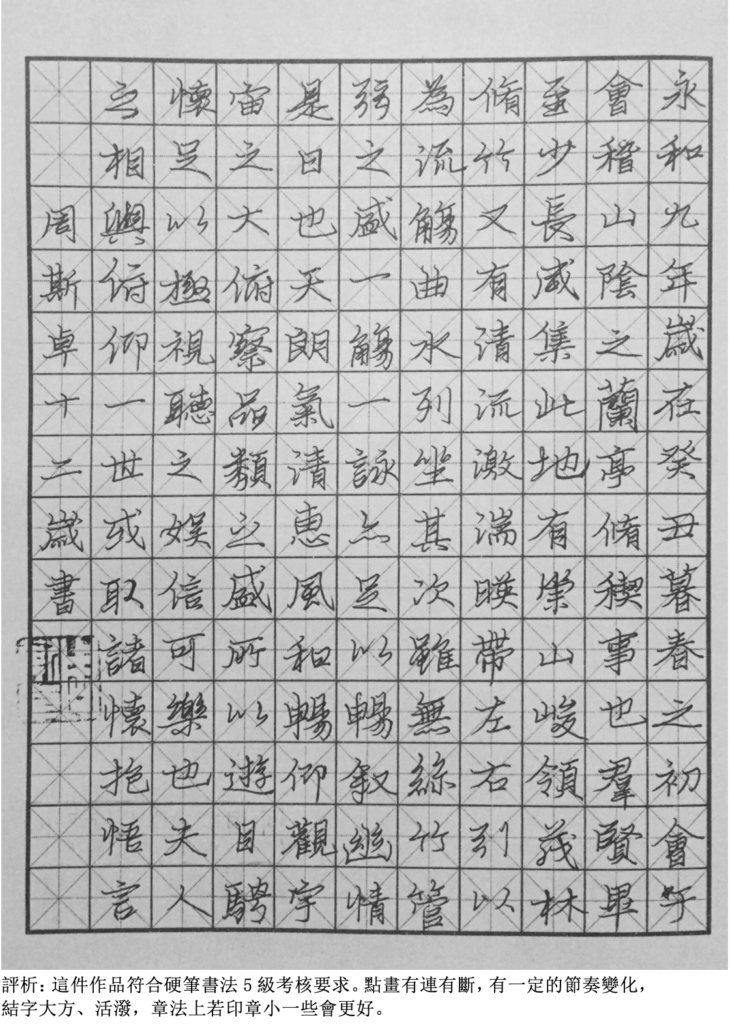 永和九年歲在癸丑暮春之初會于
會稽山陰之蘭亭脩稧事也羣賢畢
至少長咸集此地有崇山峻領茂林
脩竹又有清流激湍暎帶左右引以
為流觴曲水列坐其次雖無絲竹管
弦之盛一觴一詠亦足以暢叙幽情
是日也天朗氣清恵風和暢仰觀宇
宙之大俯察品類之盛所以遊目騁
懷足以極視聽之娛信可樂也夫人
之相與俯仰一世或取諸懷抱悟言
周斯卓十二歲書
評析：這件作品符合硬筆書法5級考核要求。點畫有連有斷，有一定的節奏變化，
結字大方、活潑，章法上若印章小一些會更好。